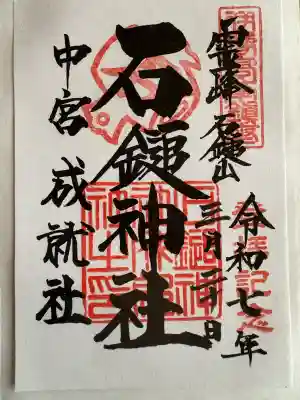 霊峰 石鎚山
令和七年
三月二十日
石鎚神社
中宮 成就社